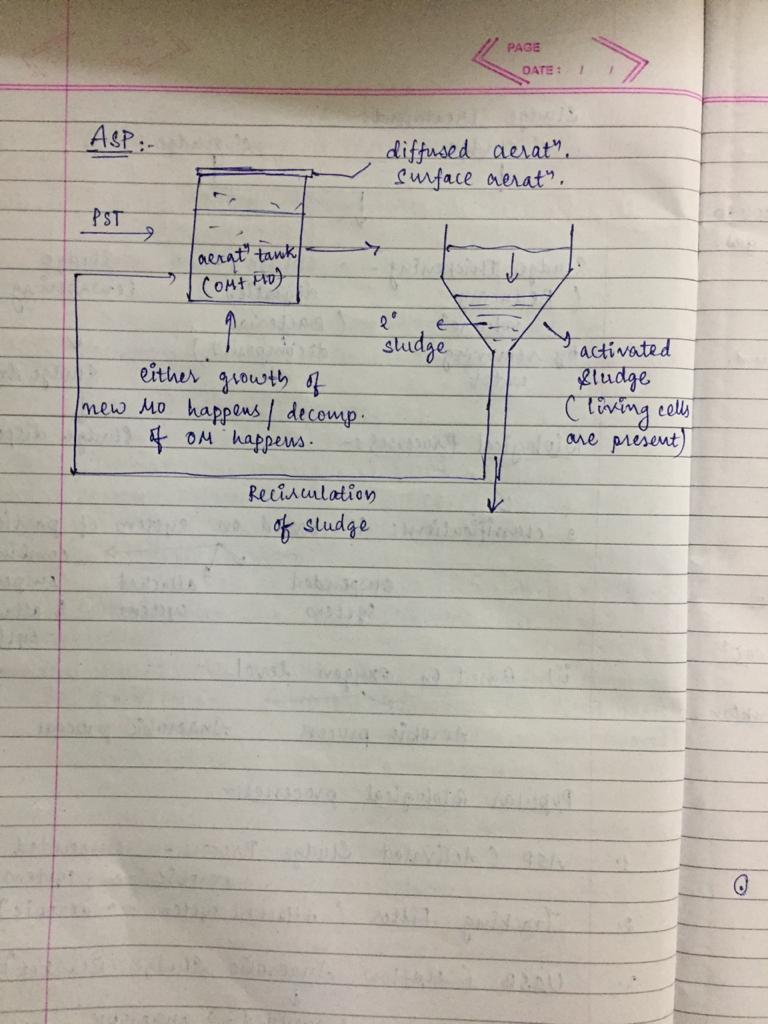 PAGE
DATE: / /
ASP:-
diffused aeratⁿ.
surface aeratⁿ.
PST
aeratⁿ tank
(OM+ MO)
2°
sludge
activated
sludge
(living cells
are present)
either growth of
new MO happens/decomp.
of OM happens.
Recirculation
of sludge